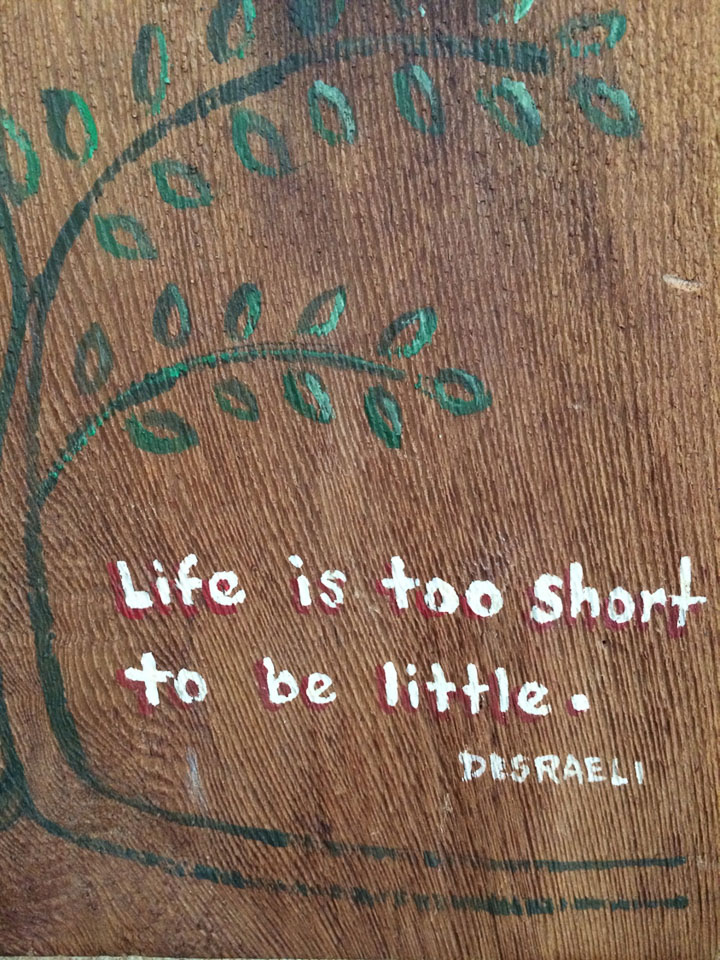 Life is too short
to be little.
DISRAELI